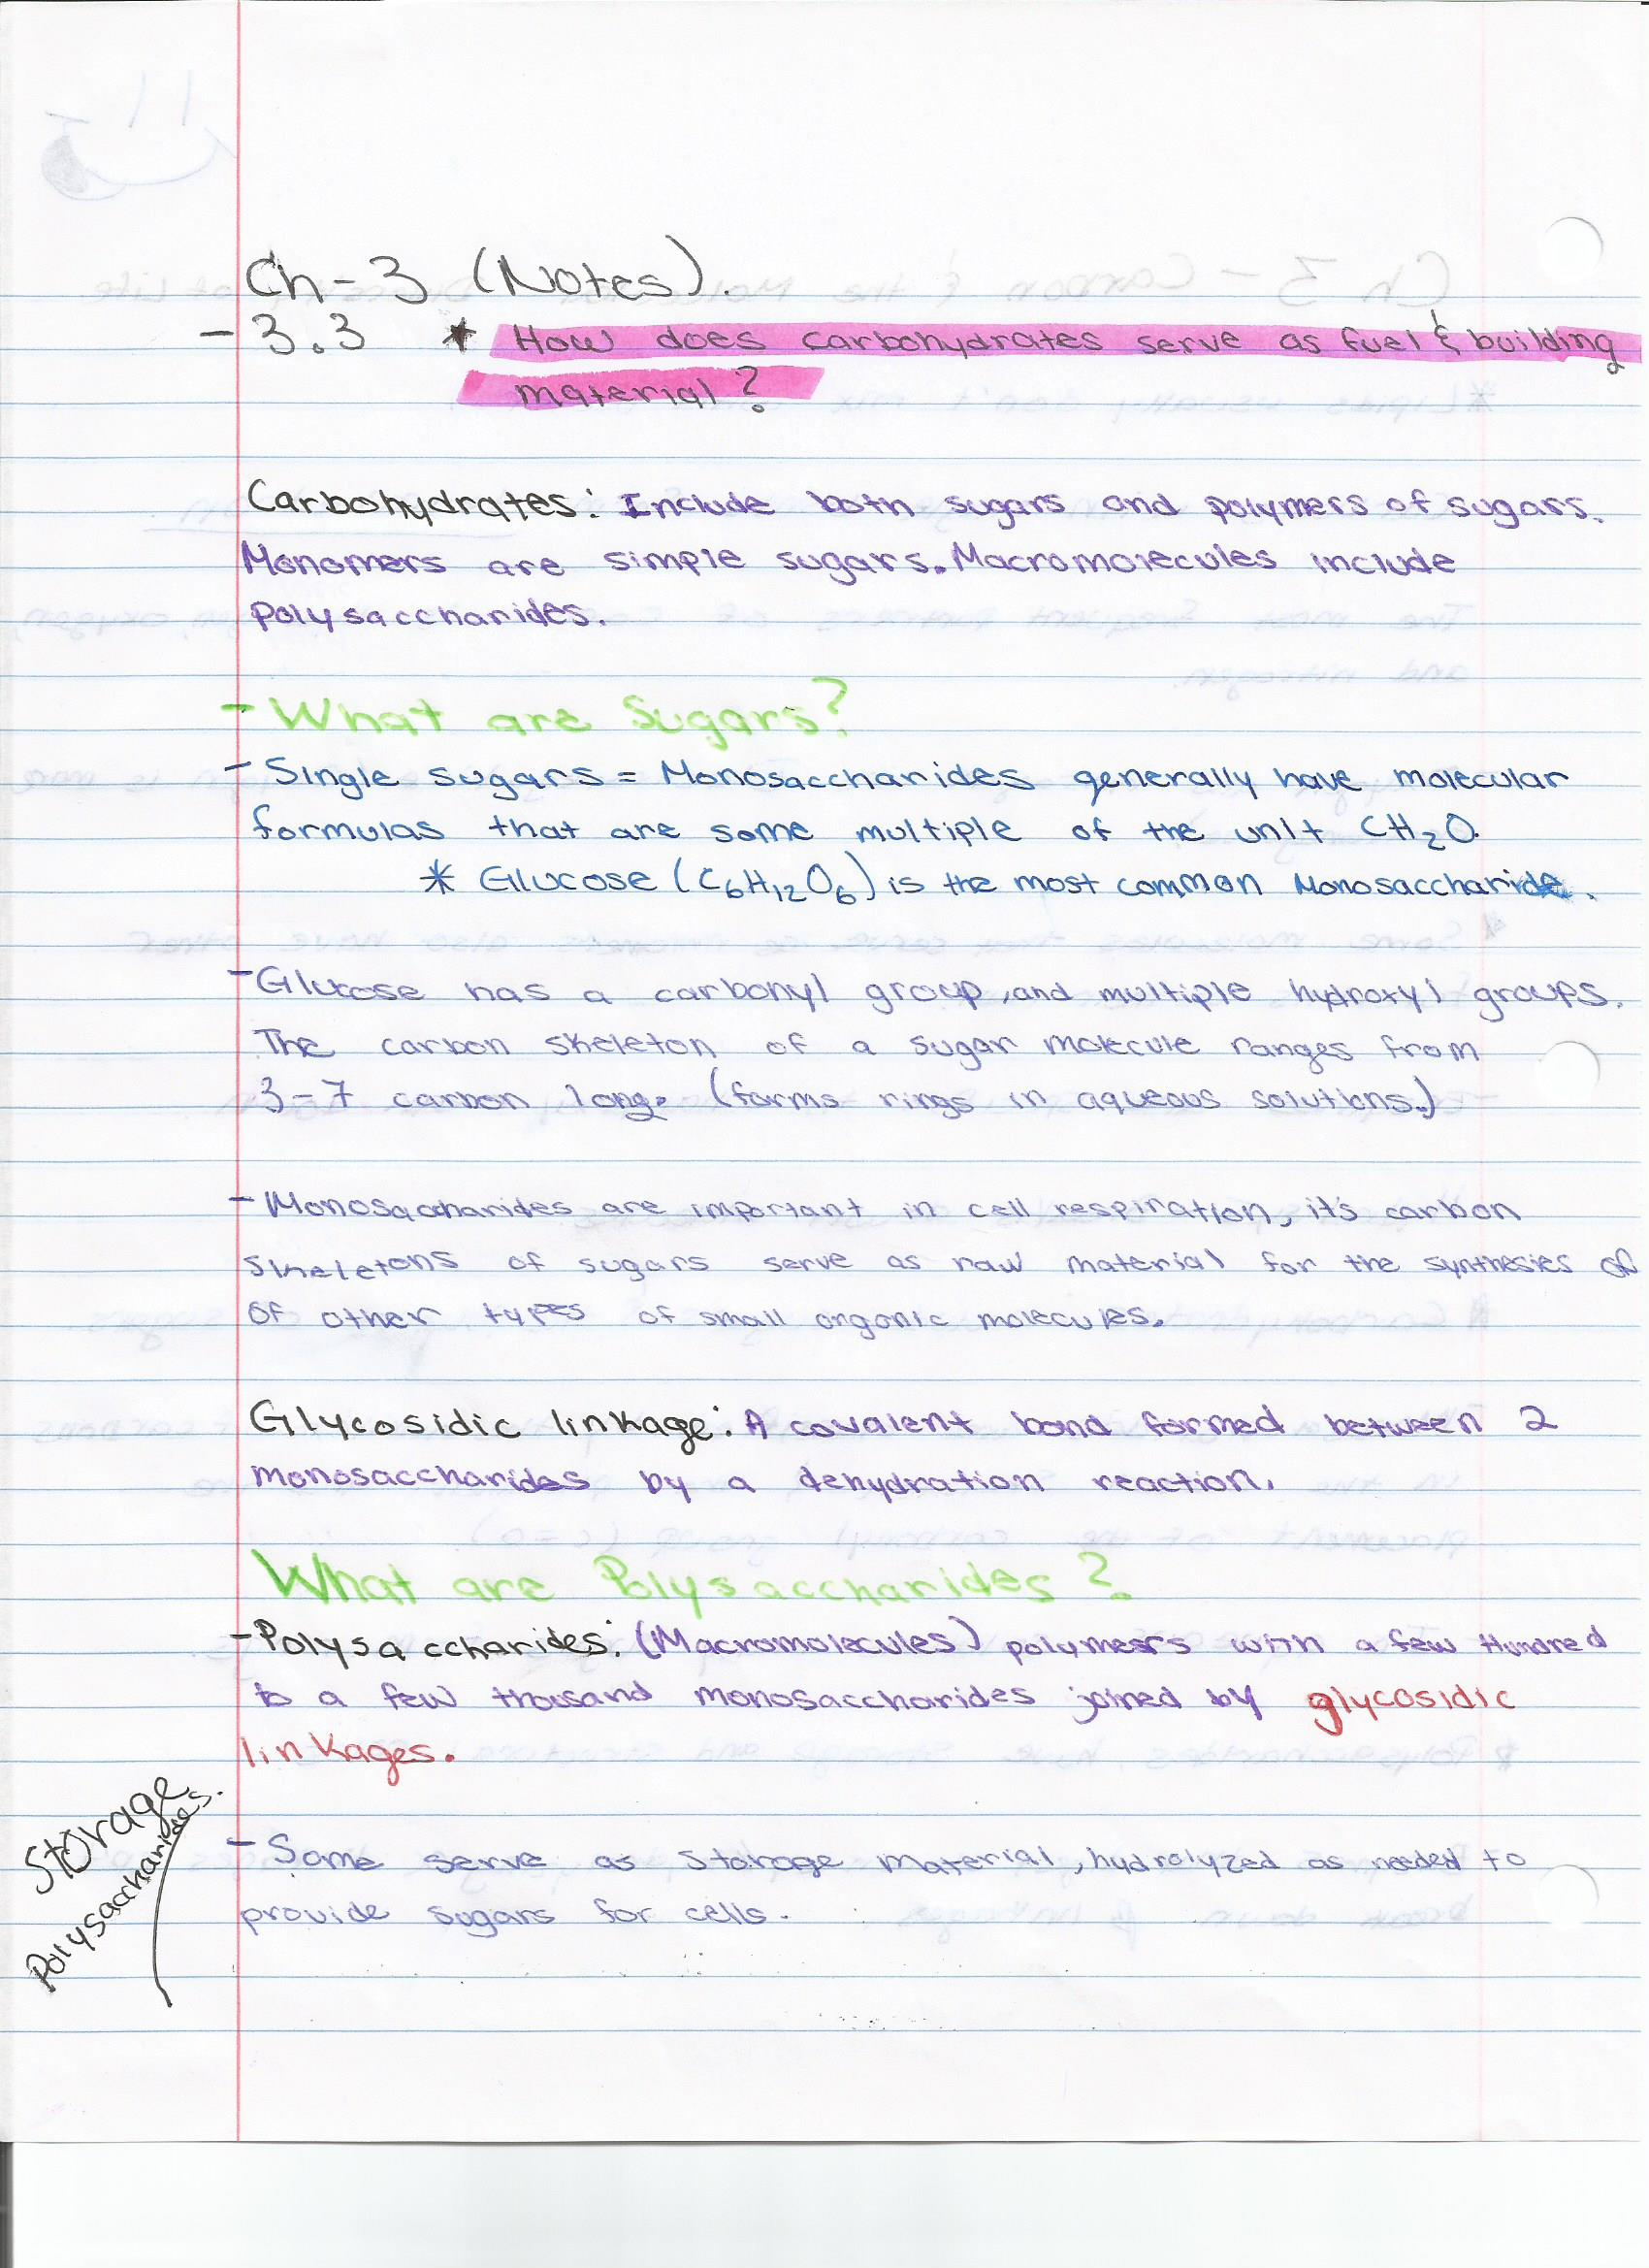 Ch-3 (Notes).
- 3.3 * How does carbohydrates serve as fuel & building
material?
Carbohydrates: Include both sugars and polymers of sugars.
Monomers are simple sugars. Macromolecules include
polysaccharides.
- What are Sugars?
- Single sugars = Monosaccharides generally have molecular
formulas that are some multiple of the unit CH₂O.
* Glucose (C₆H₁₂O₆) is the most common Monosaccharide.
- Glucose has a carbonyl group, and multiple hydroxyl groups.
The carbon skeleton of a sugar molecule ranges from
3-7 carbon long. (forms rings in aqueous solutions.)
- Monosaccharides are important in cell respiration, it's carbon
skeletons of sugars serve as raw material for the synthesies
of other types of small organic molecules.
Glycosidic linkage: A covalent bond formed between 2
monosaccharides by a dehydration reaction.
What are Polysaccharides?
- Polysaccharides: (Macromolecules) polymers with a few Hundred
to a few thousand monosaccharides joined by glycosidic
linkages.
Storage
Polysaccharides.
- Some serve as storage material, hydrolyzed as needed to
provide sugars for cells.